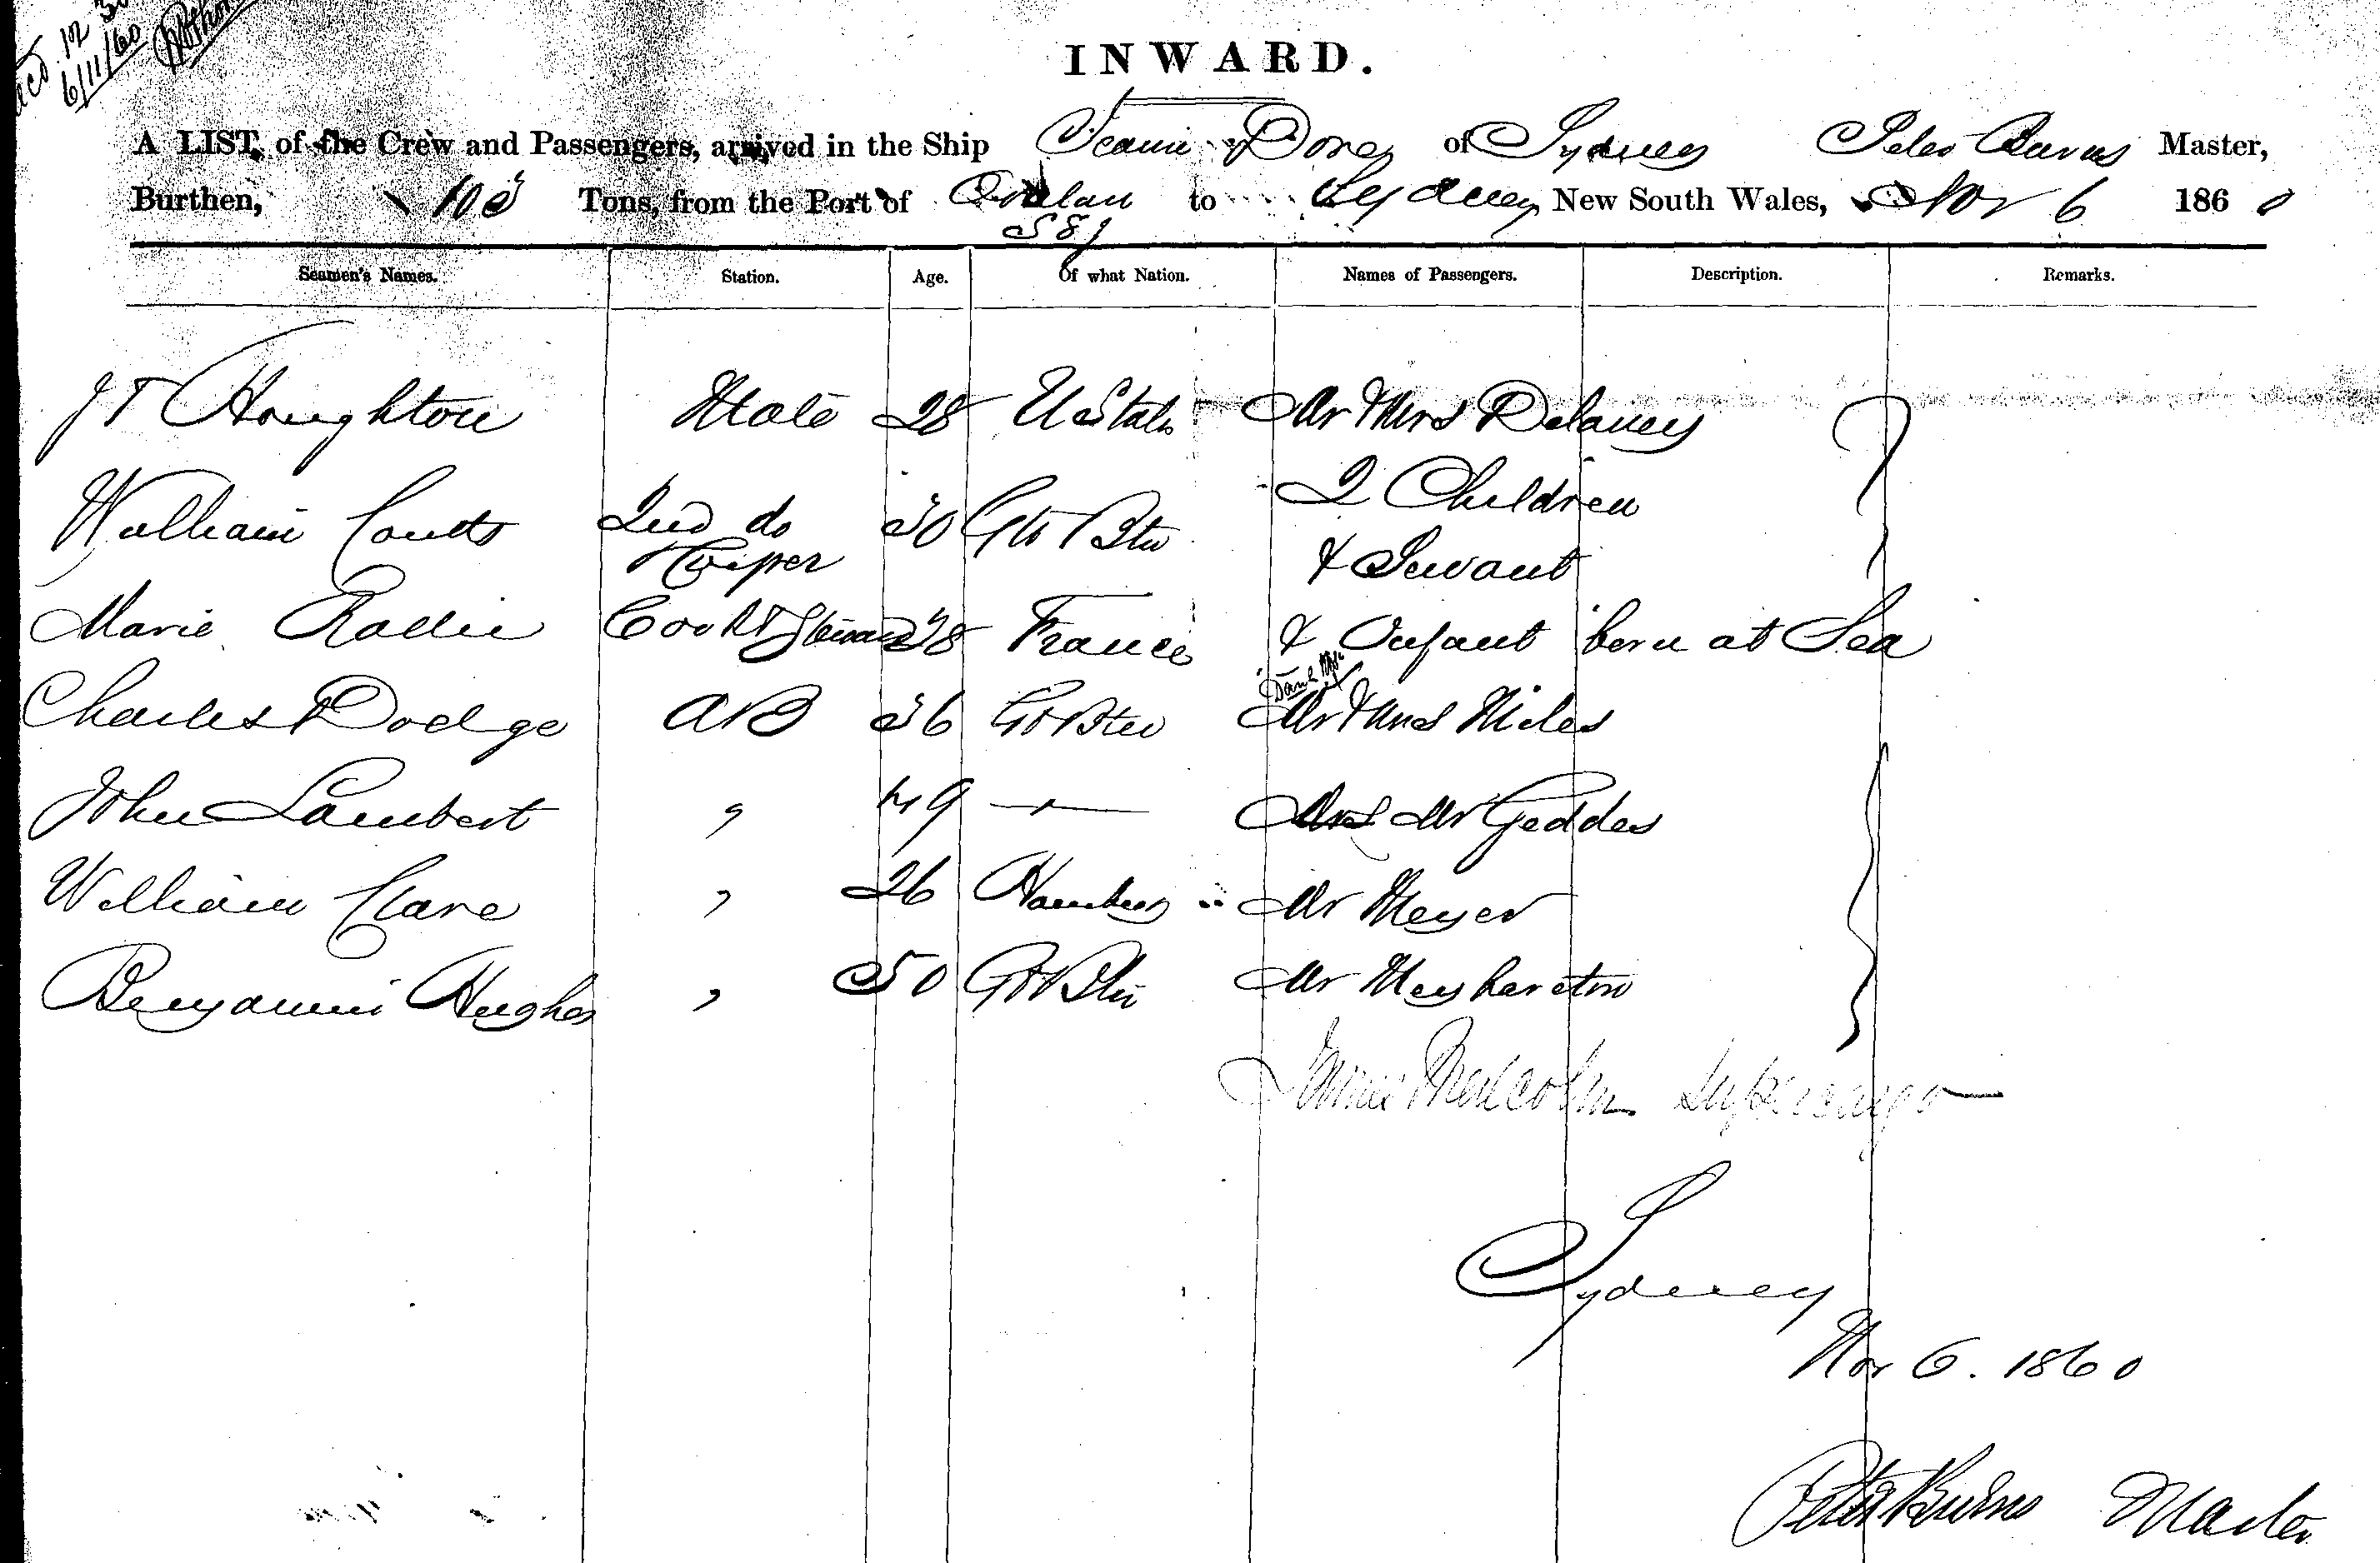 6/11/60
INWARD.
A LIST, of the Crew and Passengers, arrived in the Ship Dove of Sydney Peter Burns Master,
Burthen, Tons, from the Port of to Sydney New South Wales, Nov 6 1860
Seamen's Names. Station. Age. Of what Nation. Names of Passengers. Description. Remarks.
J T Houghton Mate 28 U States Mr & Mrs Delaney
2 Children
William Coutts 2nd do 30 Gt Btn
& Servant
Marie Cook & Steward 38 France & Infant born at Sea
Charles Dodge AB 36 Gt Btn Mr & Mrs Miles
John Lambert " 49 — Mr Geddes
William Clare " 26 Hamburg Mr Meyer
Benjamin Hughes " 50 Gt Btn Mr
James Malcolm Supercargo
Sydney
Nov 6. 1860
Peter Burns Master